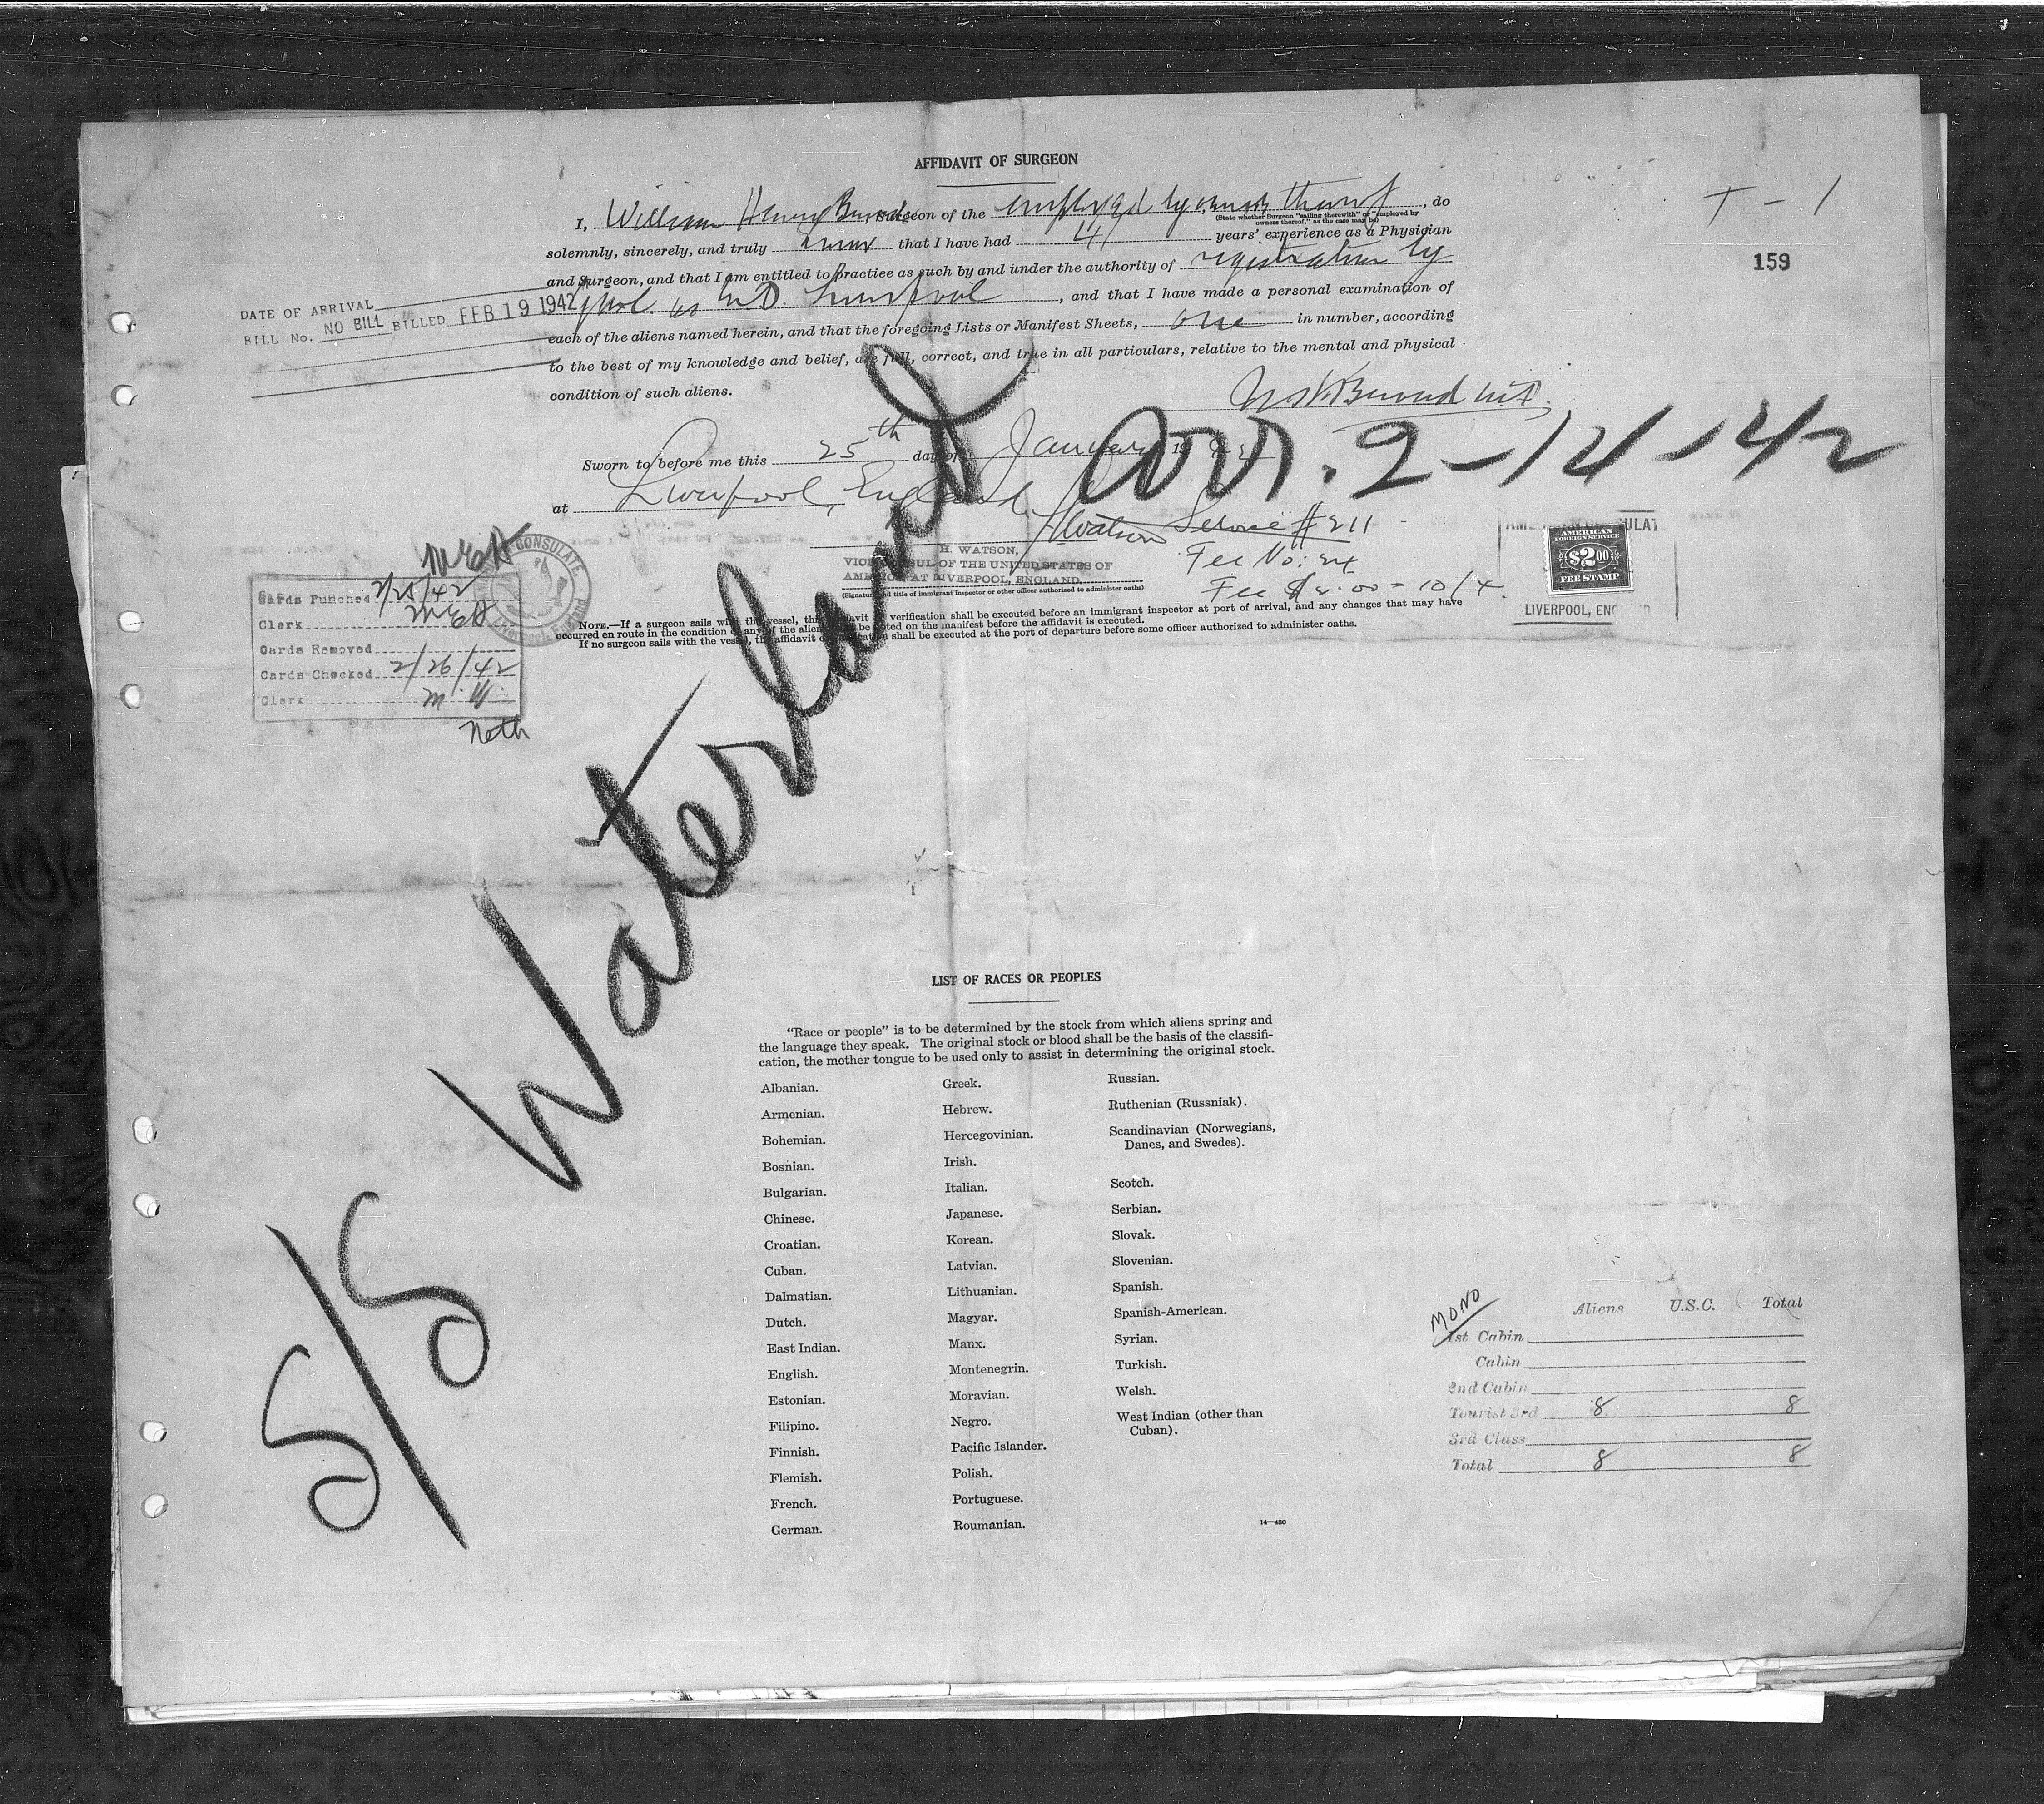 AFFIDAVIT OF SURGEON
T - 1
I, William Henry Surgeon of the employed by owners thereof, do
(State whether Surgeon "sailing therewith" or "employed by owners thereof," as the case may be)
solemnly, sincerely, and truly swear that I have had 41 years' experience as a Physician
159
and Surgeon, and that I am entitled to practice as such by and under the authority of registration by
DATE OF ARRIVAL
BILL No. NO BILL BILLED FEB 19 1942
as M.D. Liverpool, and that I have made a personal examination of
each of the aliens named herein, and that the foregoing Lists or Manifest Sheets, one in number, according
to the best of my knowledge and belief, are full, correct, and true in all particulars, relative to the mental and physical
condition of such aliens.
Arr. 2-14-42
Sworn to before me this 25th day of January 19
at Liverpool, England.
HWatson Service # 211
H. WATSON,
VICE CONSUL OF THE UNITED STATES OF
AMERICA AT LIVERPOOL, ENGLAND.
(Signature and title of immigrant inspector or other officer authorized to administer oaths)
Fee No: 24
Fee $2.00 = 10/4.
AMERICAN CONSULAT
AMERICAN
FOREIGN SERVICE
$2.00
FEE STAMP
LIVERPOOL, ENG
NOTE.—If a surgeon sails with the vessel, this affidavit of verification shall be executed before an immigrant inspector at port of arrival, and any changes that may have
occurred en route in the condition of any of the aliens shall be noted on the manifest before the affidavit is executed.
If no surgeon sails with the vessel, the affidavit of verification shall be executed at the port of departure before some officer authorized to administer oaths.
CONSULATE
MEH
Cards Punched 2/25/42
Clerk MEH
Cards Removed
Cards Checked 2/26/42
Clerk M.W.
Neth
S/S Waterland
LIST OF RACES OR PEOPLES
"Race or people" is to be determined by the stock from which aliens spring and
the language they speak. The original stock or blood shall be the basis of the classifi-
cation, the mother tongue to be used only to assist in determining the original stock.
Albanian.
Armenian.
Bohemian.
Bosnian.
Bulgarian.
Chinese.
Croatian.
Cuban.
Dalmatian.
Dutch.
East Indian.
English.
Estonian.
Filipino.
Finnish.
Flemish.
French.
German.
Greek.
Hebrew.
Hercegovinian.
Irish.
Italian.
Japanese.
Korean.
Latvian.
Lithuanian.
Magyar.
Manx.
Montenegrin.
Moravian.
Negro.
Pacific Islander.
Polish.
Portuguese.
Roumanian.
Russian.
Ruthenian (Russniak).
Scandinavian (Norwegians,
Danes, and Swedes).
Scotch.
Serbian.
Slovak.
Slovenian.
Spanish.
Spanish-American.
Syrian.
Turkish.
Welsh.
West Indian (other than
Cuban).
14—430
MONO
Aliens U.S.C. Total
1st Cabin
Cabin
2nd Cabin
Tourist 3rd 8 8
3rd Class
Total 8 8